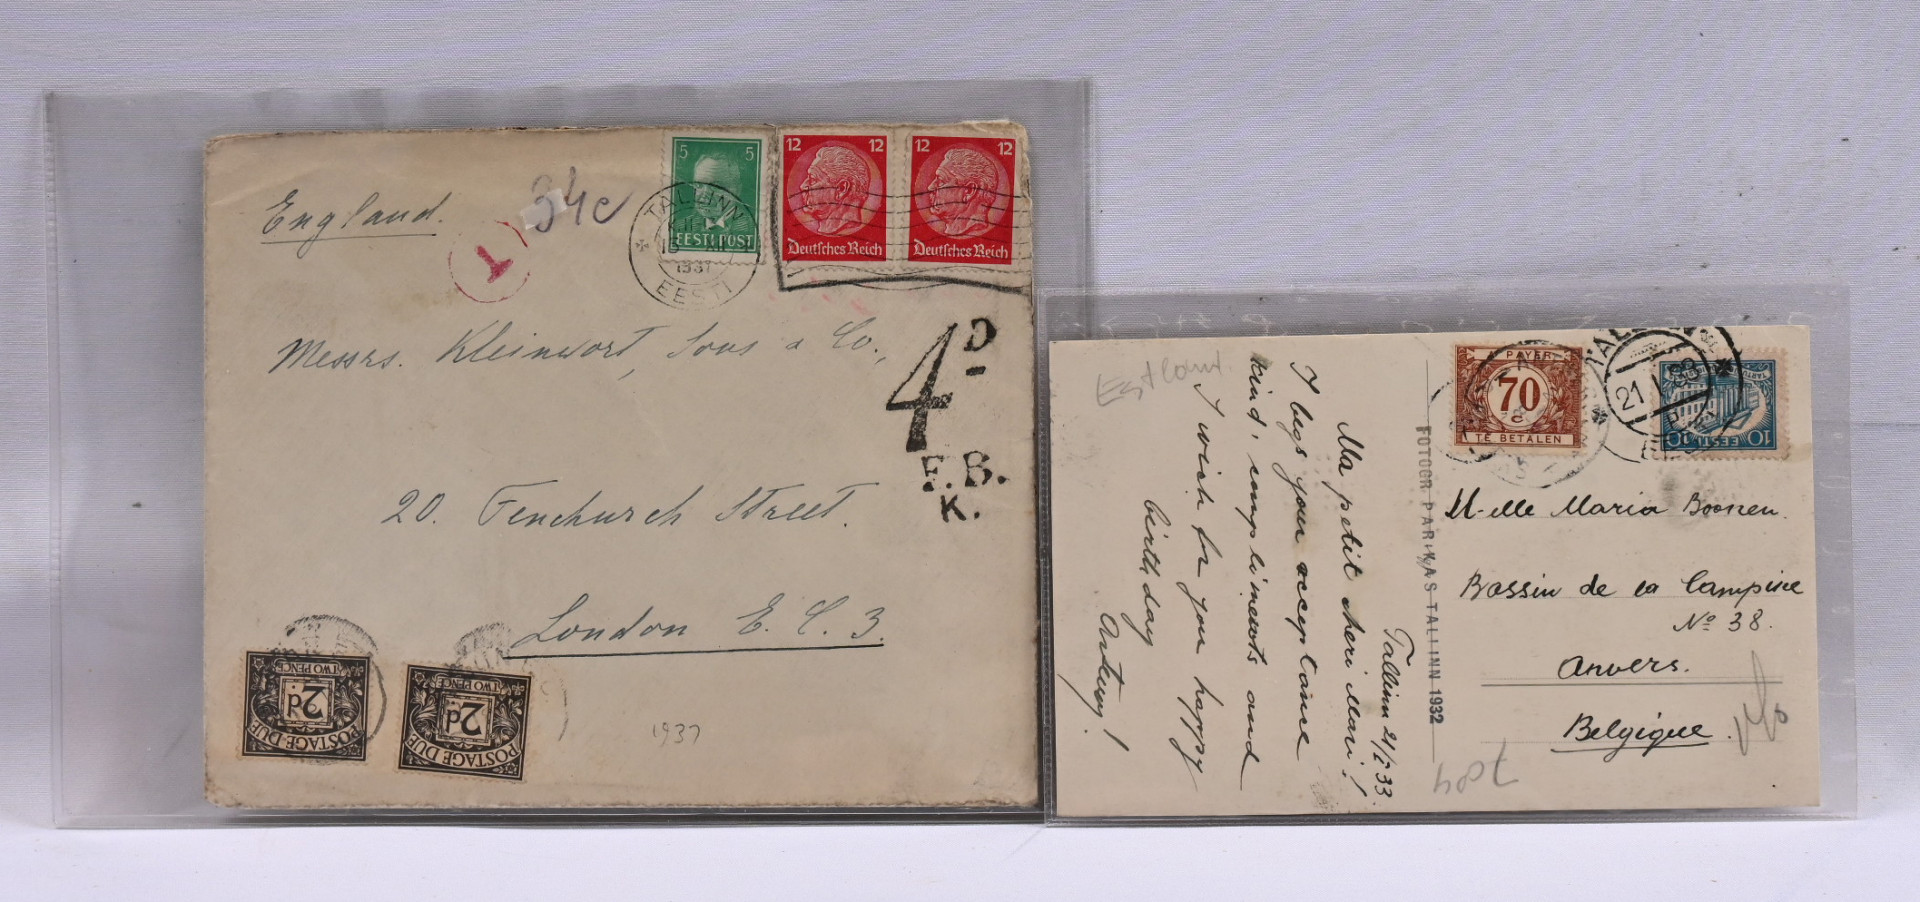 England.
34c
1
5 5
EESTI POST
TALLINN
1937
EESTI
12 12
Deutsches Reich
12 12
Deutsches Reich
Messrs. Kleinwort, Sons & Co.,
4D
F.B.
K.
20. Fenchurch Street.
London E.C.3.
TWO PENCE
2d
POSTAGE DUE
TWO PENCE
2d
POSTAGE DUE
1937
Estland
Tallinn 21/I 33.
Ma petit cheri Mari!
I begs your acceptance
kind, compliments and
I wish for you happy
birthday
FOTOGR. PARIKAS TALLINN 1932
A PAYER
70
c
TE BETALEN
21.I.33
EESTI
10 10
M-elle Maria Boonen.
Bassin de la Campine
No 38.
Anvers.
Belgique.